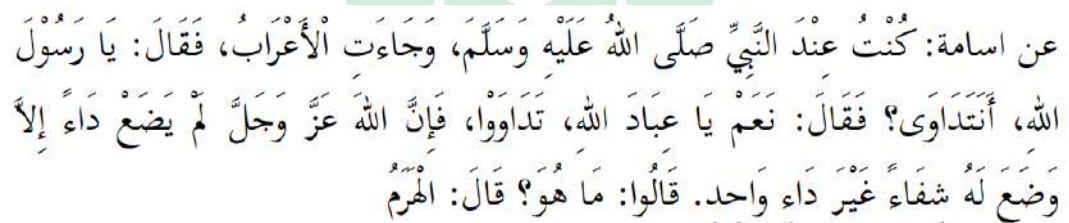 عن اسامة: كُنْتُ عِنْدَ النَّبِيِّ صَلَّى اللهُ عَلَيْهِ وَسَلَّمَ، وَجَاءَتِ الْأَعْرَابُ، فَقَالَ: يَا رَسُوْلَ
اللهِ، أَنَتَدَاوَى؟ فَقَالَ: نَعَمْ يَا عِبَادَ اللهِ، تَدَاوَوْا، فَإِنَّ اللهَ عَزَّ وَجَلَّ لَمْ يَضَعْ دَاءً إِلاَّ
وَضَعَ لَهُ شِفَاءً غَيْرَ دَاءٍ وَاحِد. قَالُوا: مَا هُوَ؟ قَالَ: الْهَرَمُ